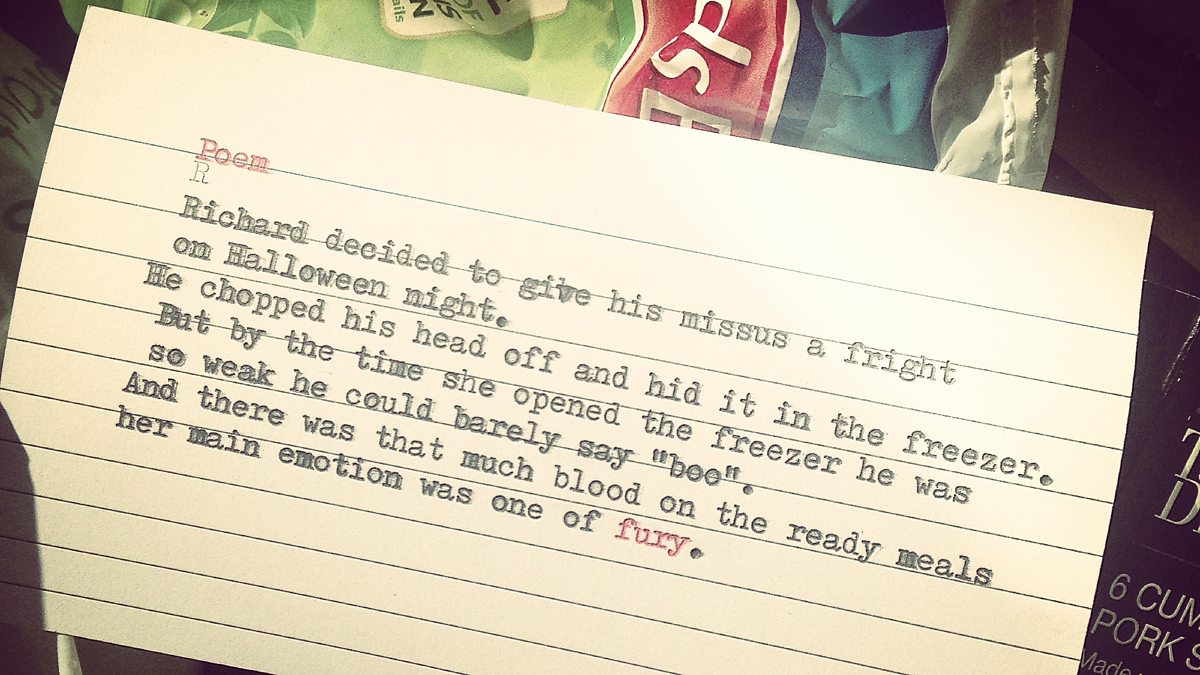 ails
OF
N
SP
Poem
R
Richard decided to give his missus a fright
on Halloween night.
He chopped his head off and hid it in the freezer.
But by the time she opened the freezer he was
so weak he could barely say "boo".
And there was that much blood on the ready meals
her main emotion was one of fury.
T
D
6 CUM
PORK S
Made